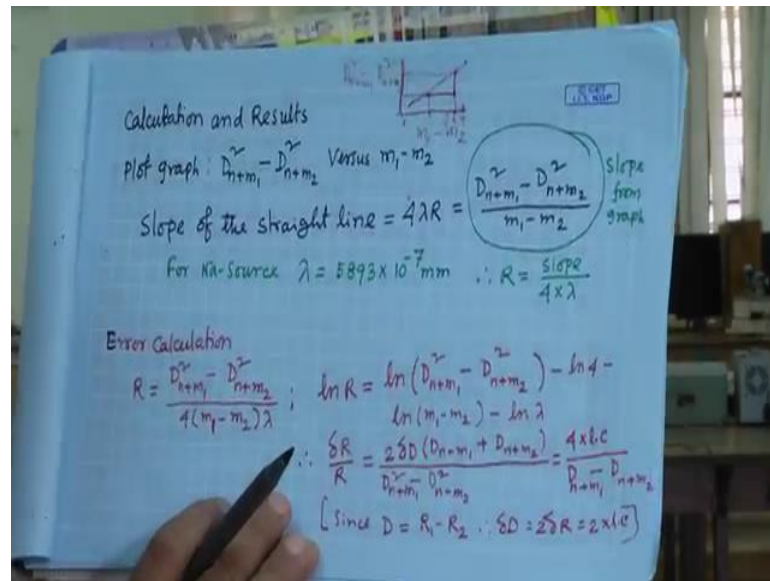 Calculation and Results
Plot graph : D²ₙ₊ₘ₁ - D²ₙ₊ₘ₂ Versus m₁-m₂
Slope of the straight line = 4λR = (D²ₙ₊ₘ₁ - D²ₙ₊ₘ₂)/(m₁-m₂)
Slope from graph
For Na-Source λ = 5893 x 10⁻⁷ mm ∴ R = slope/(4×λ)
Error Calculation
R = (D²ₙ₊ₘ₁ - D²ₙ₊ₘ₂)/(4(m₁-m₂)λ) ; ln R = ln(D²ₙ₊ₘ₁ - D²ₙ₊ₘ₂) - ln 4 -
ln(m₁-m₂) - ln λ
∴ δR/R = 2δD(Dₙ₊ₘ₁ + Dₙ₊ₘ₂)/(D²ₙ₊ₘ₁ - D²ₙ₊ₘ₂) = 4×l.c/(Dₙ₊ₘ₁ - Dₙ₊ₘ₂)
[Since D = R₁-R₂ ∴ δD = 2δR = 2×l.c]